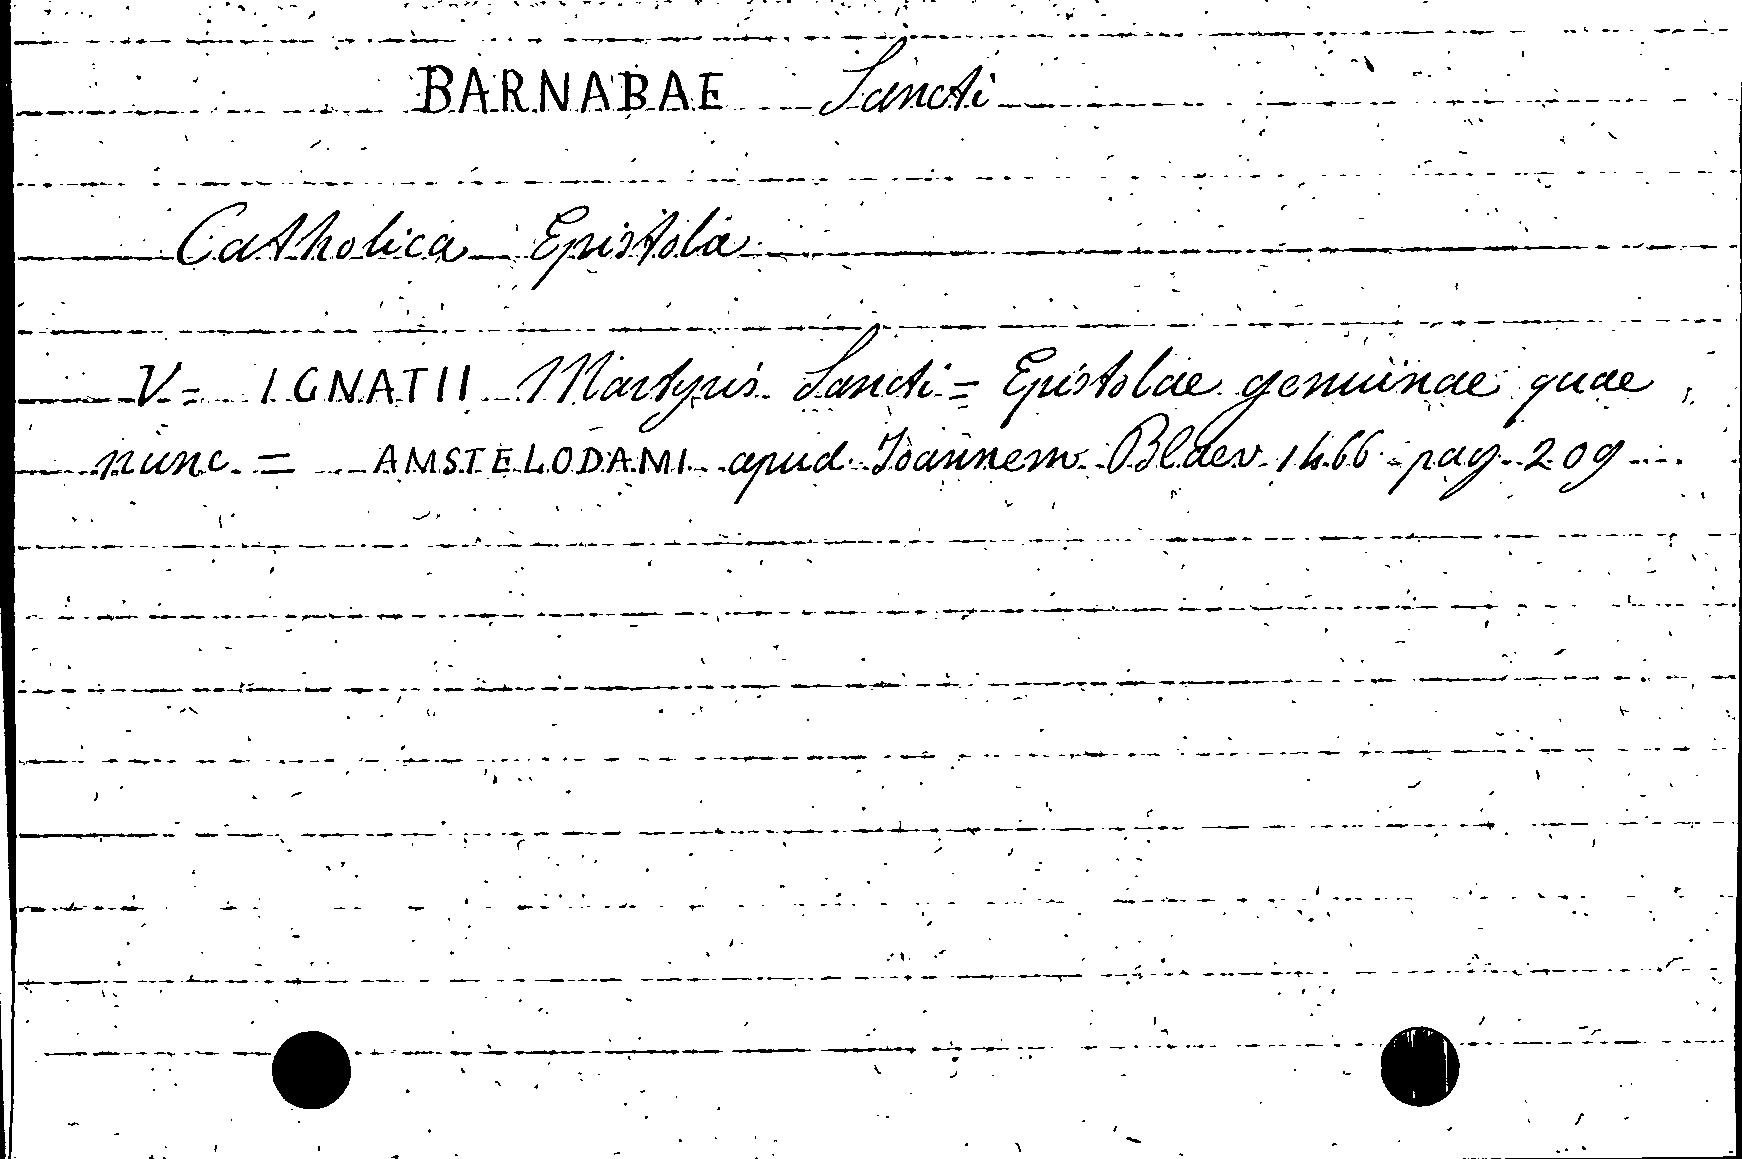 BARNABAE Sancti
Catholica Epistola
V= IGNATII Martyris Sancti = Epistolae genuinae quae
nunc = AMSTELODAMI apud Ioannem Blaev 1466 pag. 209